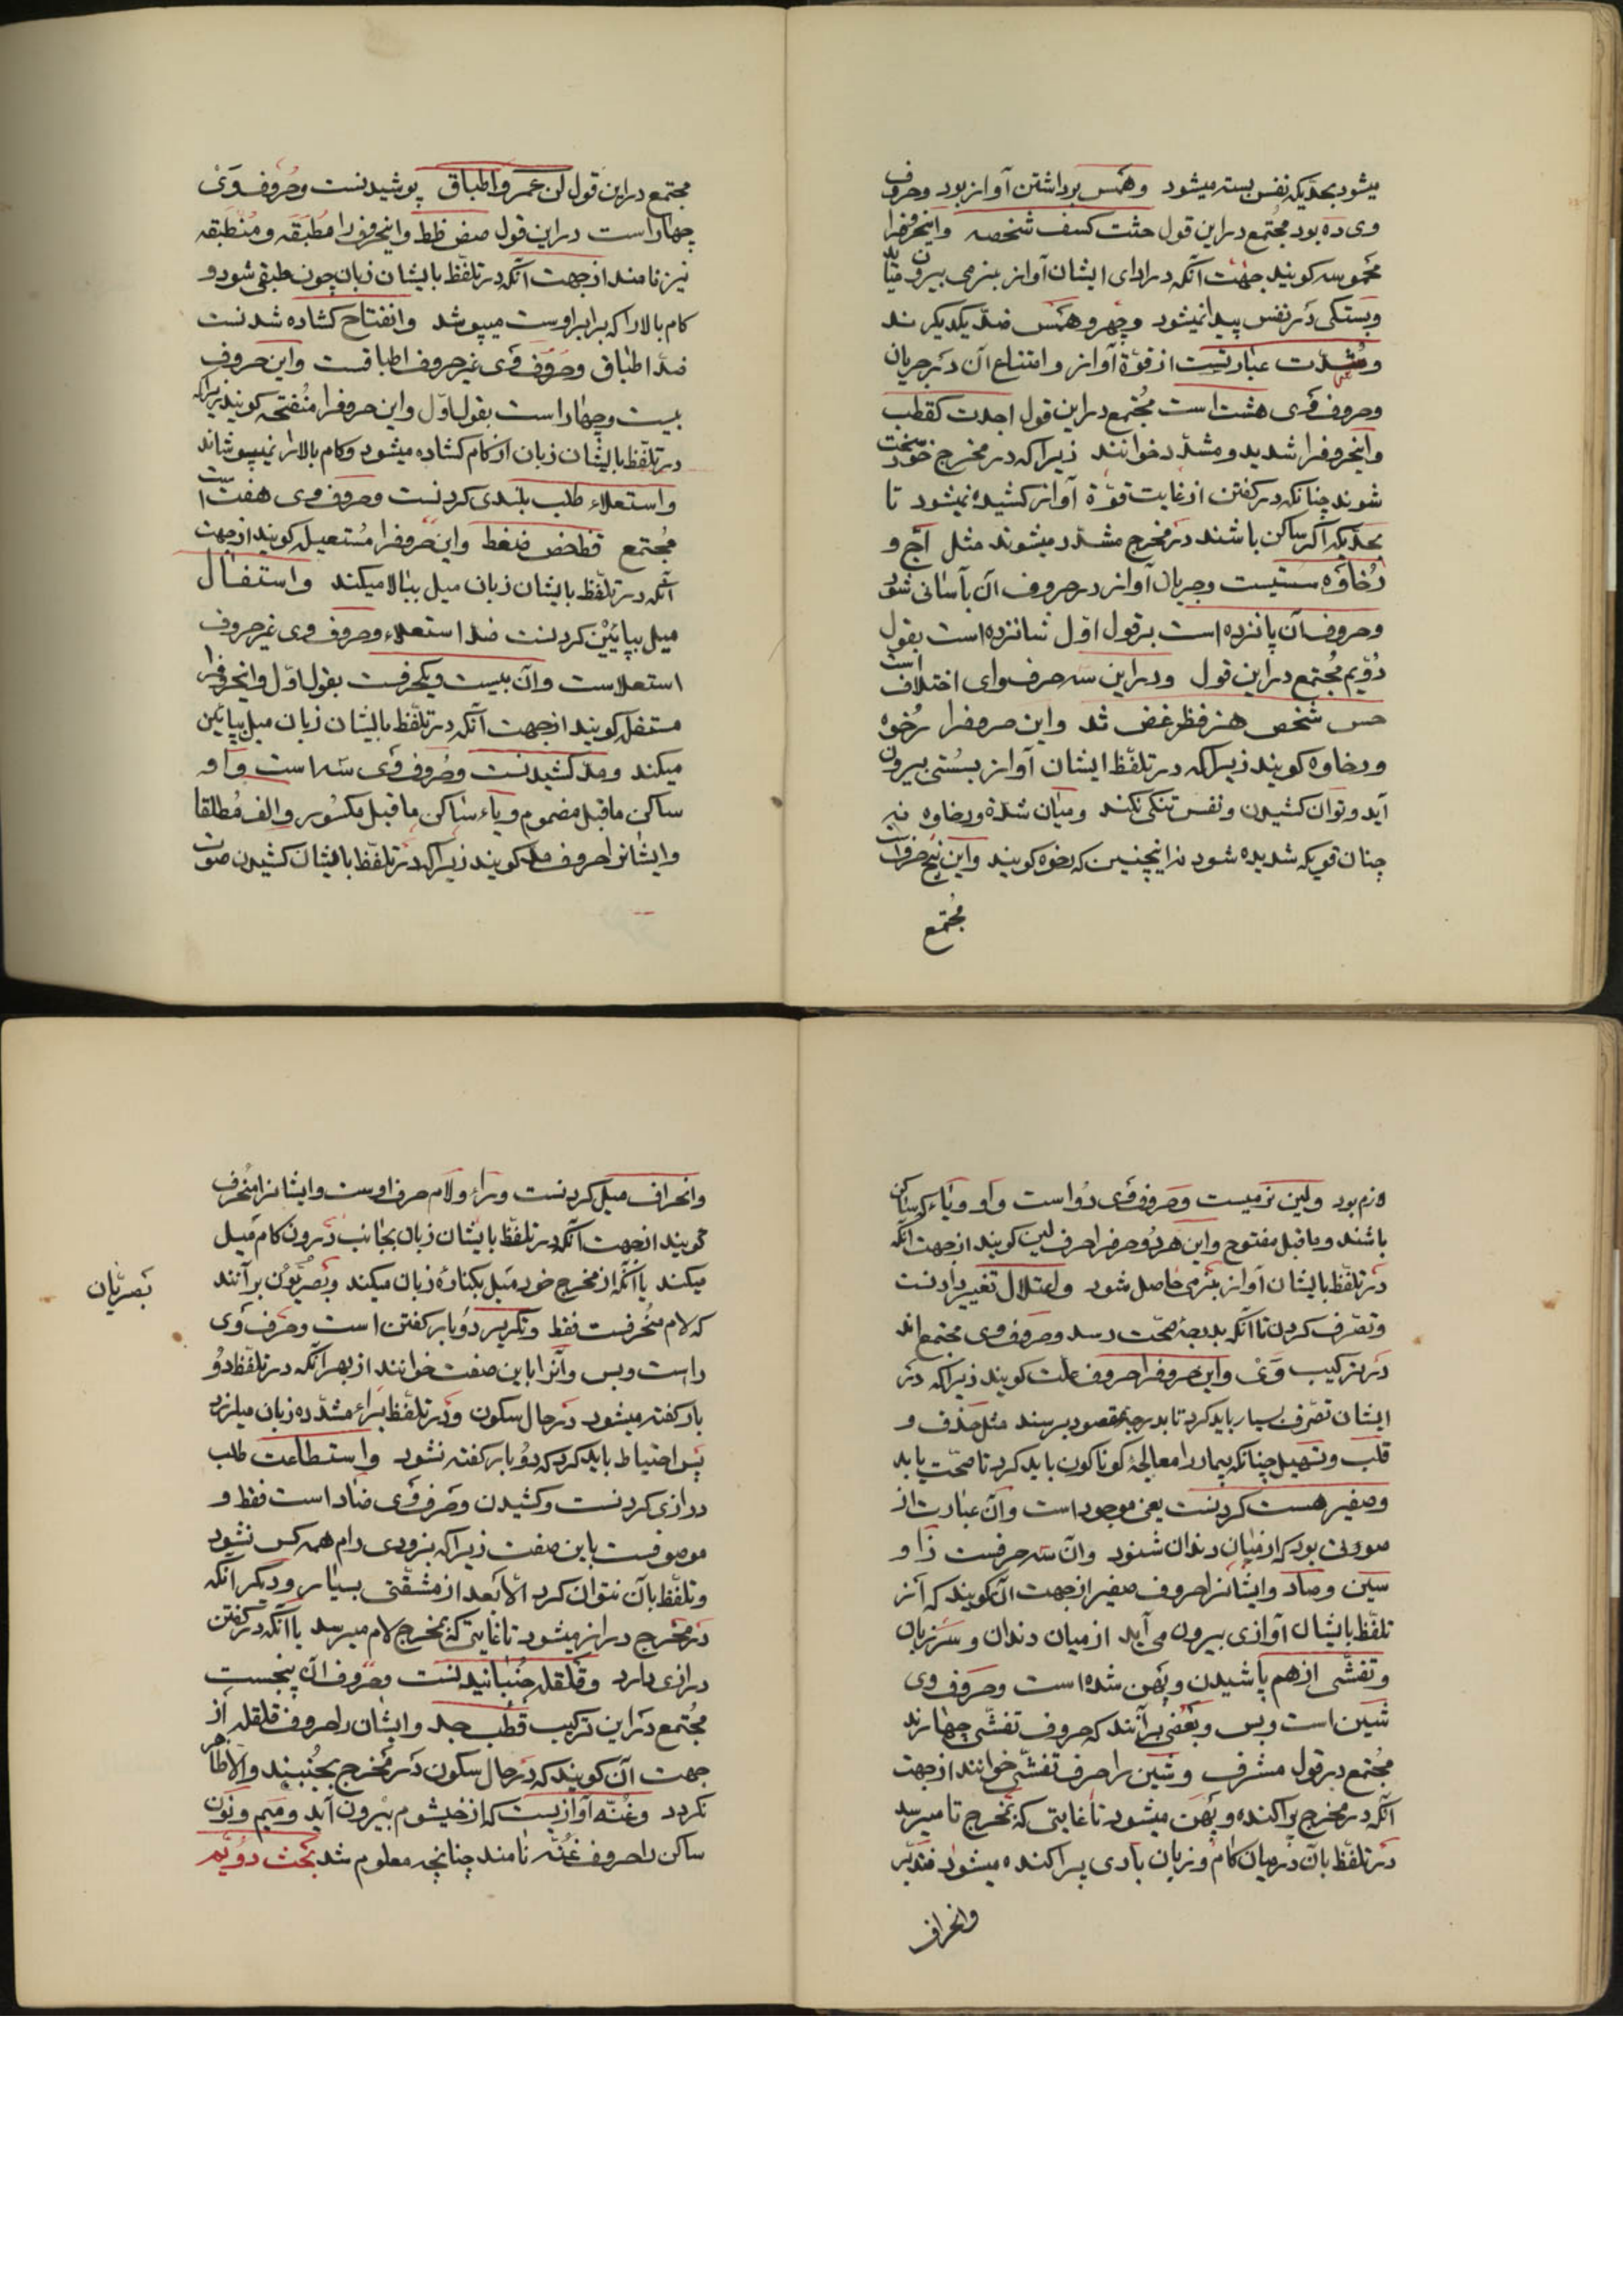 میشود بحدّیکه نفس بسته میشود وهمس برداشتن آواز بود وحروف
وی ده بود مجتمع دراین قول حثت کسف شخصه واینحروفرا
مهموسه کویند جهت آنکه در ادای ایشان آواز بنرمی بیرون میآید
وبستکی در نفس پیدا نمیشود وجهر وهمس ضدّ یکدیکرند
وشدّت عبارتست از قوّة آواز وامتناع آن در جریان
وحروف وی هشت است مجتمع دراین قول اجدت کقطب
واینحروفرا شدید ومشدّد خوانند زیراکه در مخرج خود سخت
شوند چنانکه در کفتن از غایت قوّة آواز کشیده نمیشود تا
بحدّیکه اکر ساکن باشند در مخرج مشدّد میشوند مثل اجّ و
رخاوه سستیست وجریان آواز در حروف آن بآسانی شود
وحروف آن پانزده است برقول اوّل شانزده است بقول
دوّیم مجتمع دراین قول ودراین سه حرف وای اختلاف است
حس شخص هز فظ غض ثذ واین حروفرا رخوه
ورخاوه کویند زیراکه در تلفّظ ایشان آواز بسستی بیرون
آید وتوان کشیدن ونفس تنکی نکند ومیان شدة ورخاوه نه
چنان قویکه شدیده شود نه اینچنین که رخوه کویند واین پنج حرفست
مجتمع
مجتمع دراین قول لن عمر واطباق پوشیدنست وحروف وی
چهار است دراین قول صض طظ واینحروفرا مطبقه ومنطبقه
نیز نامند ازجهت آنکه در تلفّظ بایشان زبان چون طبقی شود و
کام بالا را که برابر اوست میپوشد وانفتاح کشاده شدنست
ضدّ اطباق وحروف وی غیر حروف اطباقست واین حروف
بیست وچهار است بقول اوّل واین حروفرا منفتحه کویند زیراکه
در تلفّظ بایشان زبان از کام کشاده میشود وکام بالا را نمیپوشاند
واستعلاء طلب بلندی کردنست وحروف وی هفت است
مجتمع قظ خص ضغط واین حروفرا مستعیله کویند ازجهت
آنکه در تلفّظ بایشان زبان میل ببالا میکند واستفال
میل بپائین کردنست ضد استعلاء وحروف وی غیر حروف
استعلاست وآن بیست ویکحرفست بقول اوّل واینحروفرا
مستفل کویند ازجهت آنکه در تلفّظ بایشان زبان میل بپائین
میکند ومدّ کشیدنست وحروف وی سه است واو
ساکن ماقبل مضموم ویاء ساکن ماقبل مکسور والف مطلقا
وایشانرا حروف مد کویند زیراکه در تلفّظ بایشان کشیدن صوت
لازم بود ولین نرمیست وحروف وی دو است واو ویاء که ساکن
باشند وماقبل مفتوح واین هر دو حرفرا حرف لین کویند ازجهت آنکه
در تلفّظ بایشان آواز بنرمی حاصل شود واعتلال تغییر دادنست
وتصرّف کردن تا آنکه بدرجۀ صحّت رسد وحروف وی مجتمع اند
در ترکیب وی واین حروفرا حروف علّت کویند زیراکه در
ایشان تصرّف بسیار باید کرد تا بدرجۀ مقصود برسند مثل حذف و
قلب وتسهیل چنانکه بیمار را معالجۀ کوناکون باید کرد تا صحّت یابد
وصفیر هست کردنست یعنی موجود است وآن عبارت از
صوتی بود که از میان دندان شنود وآن سه حرفست زا و
سین وصاد وایشانرا حروف صفیر ازجهت آن کویند که از
تلفّظ بایشان آوازی بیرون می آید از میان دندان وسر زبان
وتفشّی از هم پاشیدن وپهن شده است وحروف وی
شین است وبس وبعضی برآنند که حروف تفشّی چهارند
مجتمع در قول مشرف وشین را حرف تفشّی خوانند ازجهت
آنکه در مخرج پراکنده وپهن میشود تا غایتی که بمخرج تا میرسد
در تلفّظ بآن در میان کام وزبان بادی پراکنده میشود فتدبّر
وانحراف
وانحراف میل کردنست وراء ولام حرف اوست وایشانرا منحرف
کویند ازجهت آنکه در تلفّظ بایشان زبان بجانب درون کام میل
میکند یا آنکه از مخرج خود میل بکنارۀ زبان میکند وبصریّون برآنند
بصریّان
که لام منحرفست فقط وتکریر دوبار کفتن است وحرف وی
راست وبس وآنرا باین صفت خوانند از بهر آنکه در تلفّظ دو
بار کفته میشود در حال سکون ودر تلفّظ براء مشدّده زبان میلرزد
پس احتیاط باید کرد که دو بار کفته نشود واستطاعت طلب
درازی کردنست وکشیدن وحرف وی ضاد است فقط و
موصوفست باین صفت زیراکه بزودی رام همه کس نشود
وتلفّظ بآن نتوان کرد الّا بعد از مشقّتی بسیار ودیکر آنکه
در مخرج دراز میشود تا غایتی که بمخرج لام میرسد یا آنکه در کفتن
درازی دارد وقلقله جنبانیدنست وحروف آن پنجست
مجتمع در این ترکیب قطب جد وایشان را حروف قلقله از
جهت آن کویند که در حال سکون در مخرج بجنبند والّا ظاهر
نکردد وغنّه آوازیست که از خیشوم بیرون آید ومیم ونون
ساکن را حروف غنّه نامند چنانچه معلوم شد بحث دوّیم